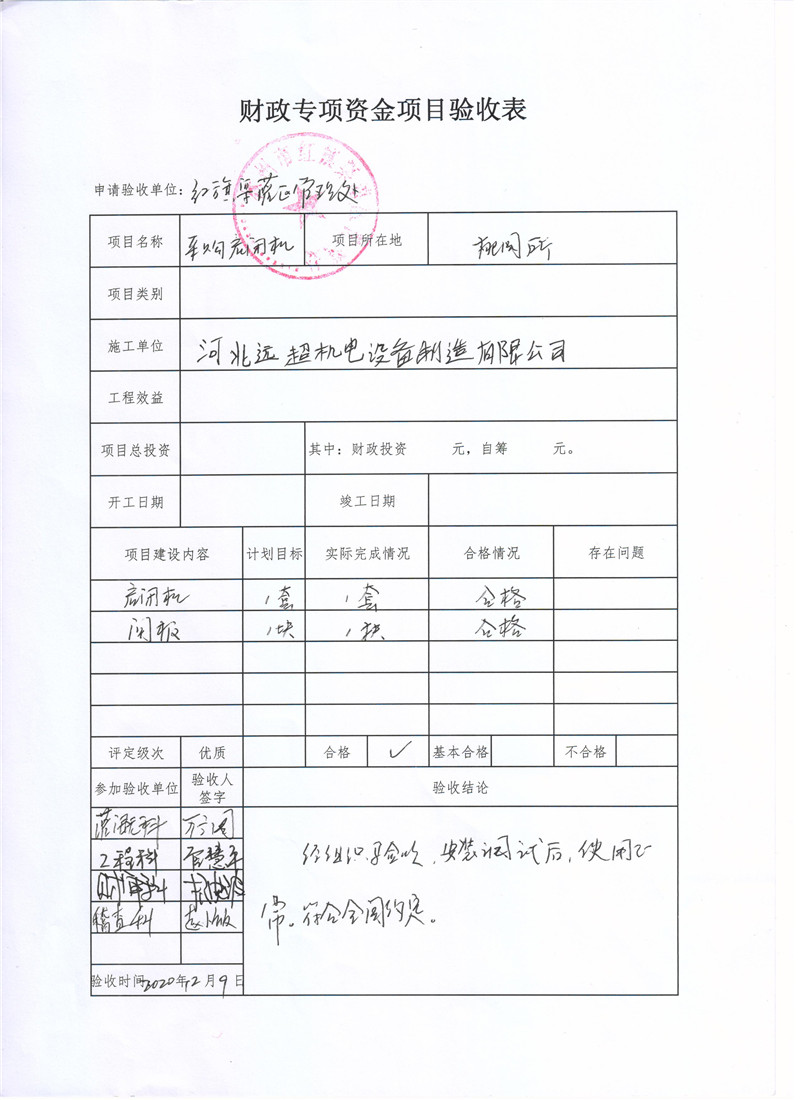 财政专项资金项目验收表
申请验收单位：红旗渠灌区管理处
项目名称 采购启闭机 项目所在地 桃园所
项目类别
施工单位 河北远超机电设备制造有限公司
工程效益
项目总投资 其中：财政投资 元，自筹 元。
开工日期 竣工日期
项目建设内容 计划目标 实际完成情况 合格情况 存在问题
启闭机 1套 1套 合格
闸板 1块 1块 合格
评定级次 优质 合格 ✓ 基本合格 不合格
参加验收单位 验收人签字 验收结论
灌溉科
工程科
财审科
稽查科
经组织验收，安装调试后，使用正
常。符合合同约定。
验收时间 2020年12月9日